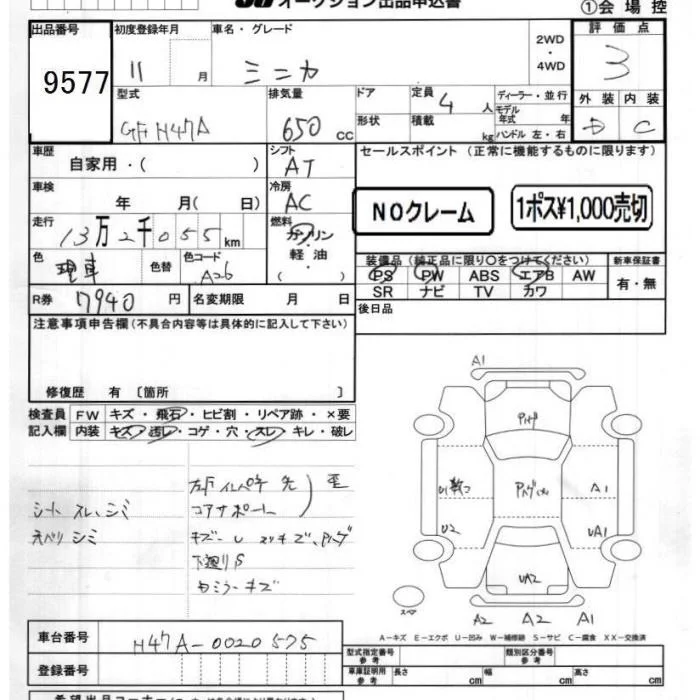 オークション出品申込書
①会場控
出品番号 初度登録年月 車名・グレード 2WD・4WD 評価点
9577 11 月 ミニカ 3
型式 排気量 ドア 定員 ディーラー・並行 外装 内装
GF H47A 650 cc 形状 4人 積載 kg モデル年式 年 ハンドル 左・右 D C
車歴 シフト セールスポイント (正常に機能するものに限ります)
自家用・( ) AT
車検 年 月( 日) 冷房 AC
NOクレーム 1ポス¥1,000売切
走行 13万2千055km 燃料 ガソリン・軽油・( )
色 色替 色コード A26
装備品 (純正品に限り○をつけてください) 新車保証書
PS PW ABS エアB AW 有・無
SR ナビ TV カワ
R券 7940円 名変期限 月 日 後日品
注意事項申告欄(不具合内容等は具体的に記入して下さい)
修復歴 有 〔箇所 〕
検査員 FW キズ・飛石・ヒビ割・リペア跡・×要
記入欄 内装 キズ・汚レ・コゲ・穴・スレ・キレ・破レ
シート スレ、シミ
天バリ シミ
コアサポート
下廻りS
A1
U1
U2
A1
UA1
UA2
A2 A2 A1
スペア
A−キズ E−エクボ U−凹み W−補修跡 S−サビ C−腐食 XX−交換済
車台番号 H47A-0020575
登録番号
型式指定番号 参考 類別区分番号 参考
車庫証明用 参考 長さ cm 幅 cm 高さ cm